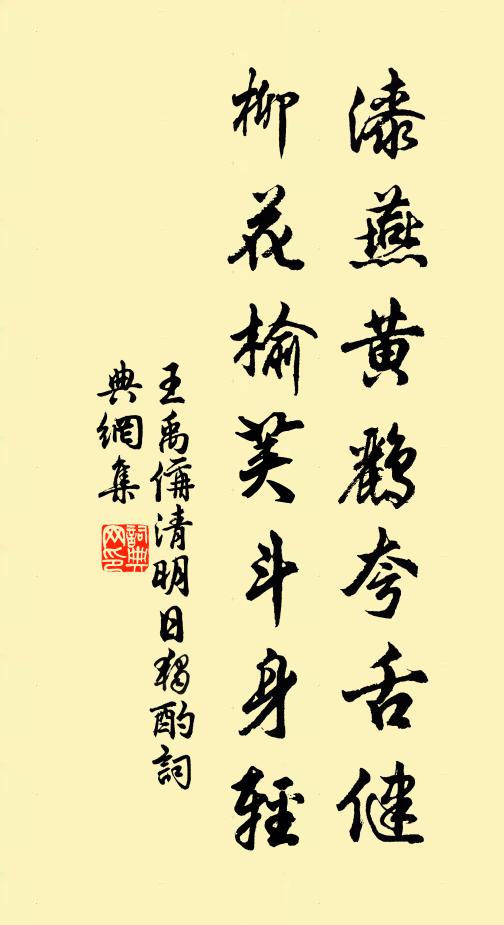 漆燕黄鸝夸舌健
柳花榆荚斗身輕
王禹偁清明日獨酌詞
典網集
詞典
网印